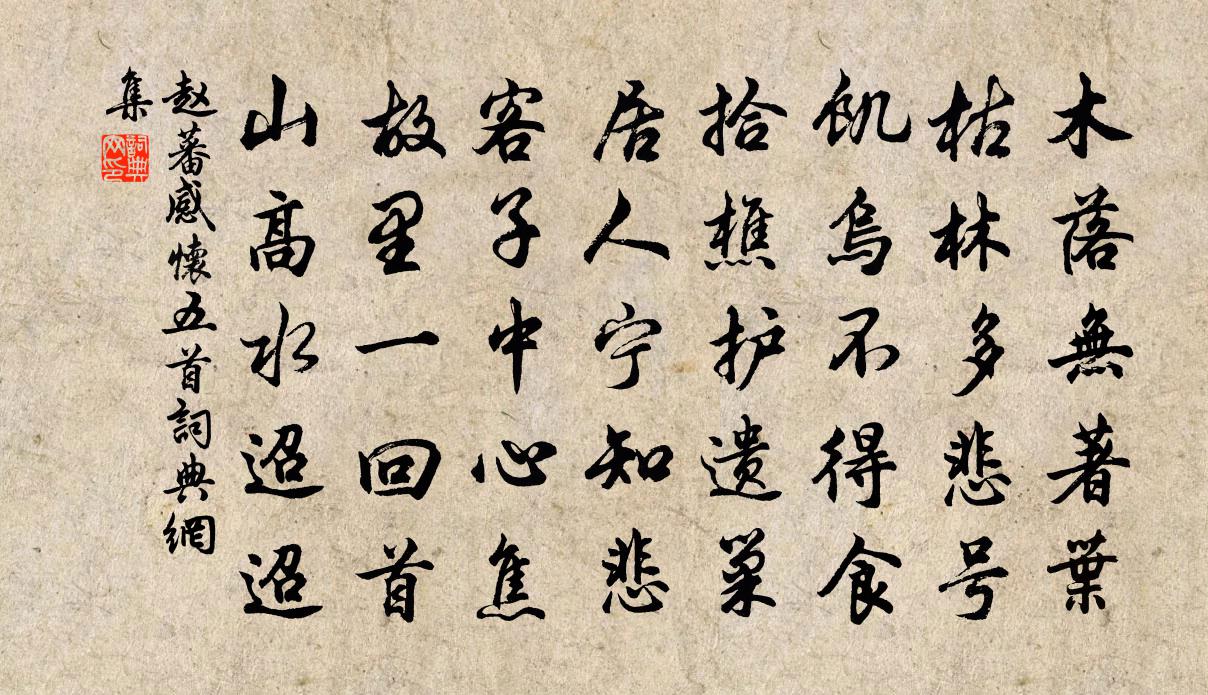 木落無著葉
枯林多悲号
飢烏不得食
拾樵护遗巢
居人宁知悲
客子中心焦
故里一回首
山高水迢迢
赵蕃感懷五首詞典網
集
詞典
网